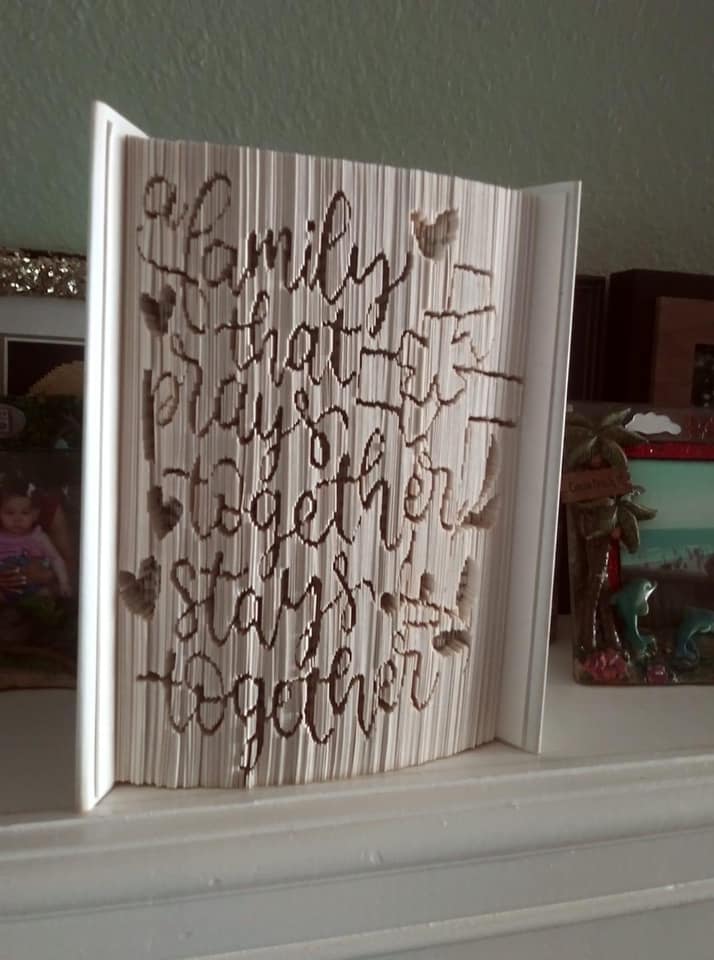 a family
that
prays
together
stays
together